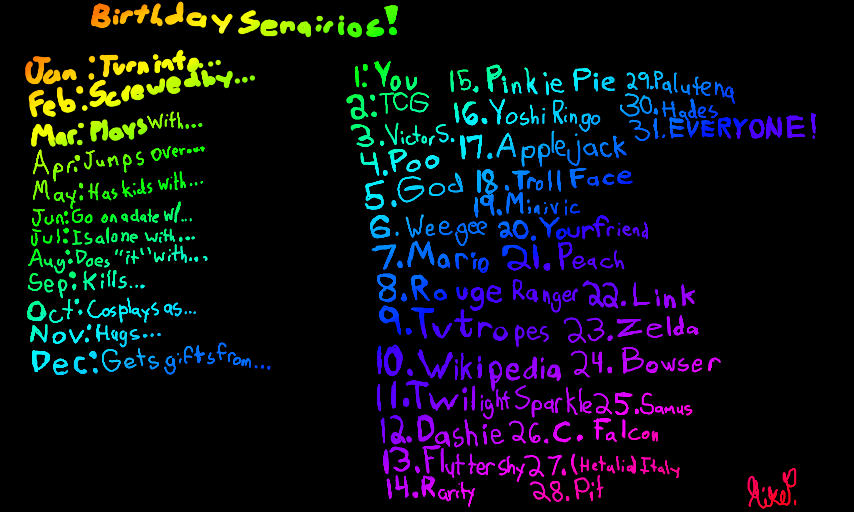 Birthday Senairios!
Jan: Turn into...
Feb: Screwed by...
Mar: Plays with...
Apr: Jumps over...
May: Has kids with...
Jun: Go on a date w/...
Jul: Is alone with...
Aug: Does "it" with...
Sep: Kills...
Oct: Cosplays as...
Nov: Hugs...
Dec: Gets gifts from...
1: You
2: TCG
3. Victor S.
4. Poo
5. God
6. Weegee
7. Mario
8. Rouge Ranger
9. Tvtropes
10. Wikipedia
11. Twilight Sparkle
12. Dashie
13. Fluttershy
14. Rarity
15. Pinkie Pie
16. Yoshi Ringo
17. Applejack
18. Troll Face
19. Minivic
20. Yourfriend
21. Peach
22. Link
23. Zelda
24. Bowser
25. Samus
26. C. Falcon
27. (Hetalia) Italy
28. Pit
29. Palutena
30. Hades
31. EVERYONE!
like?